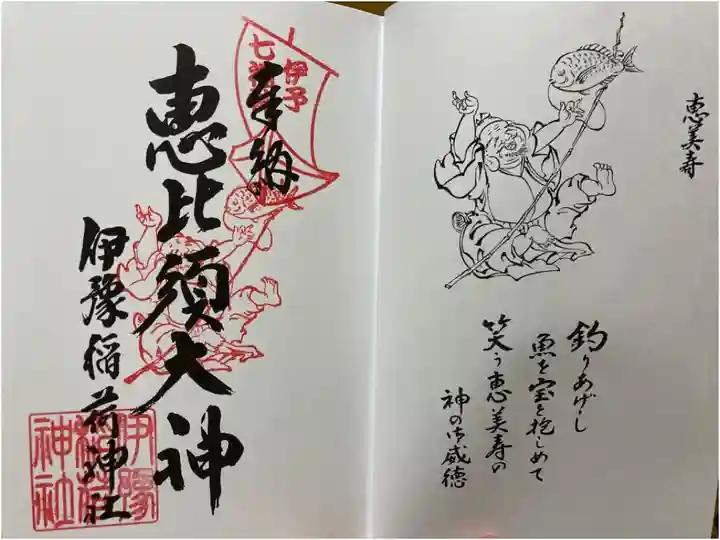 恵美寿
釣りあげし
魚を宝と抱しめて
笑う恵美寿の
神の御威徳
伊予
七福
奉納
恵比須大神
伊豫稲荷神社
伊豫
稲荷
神社